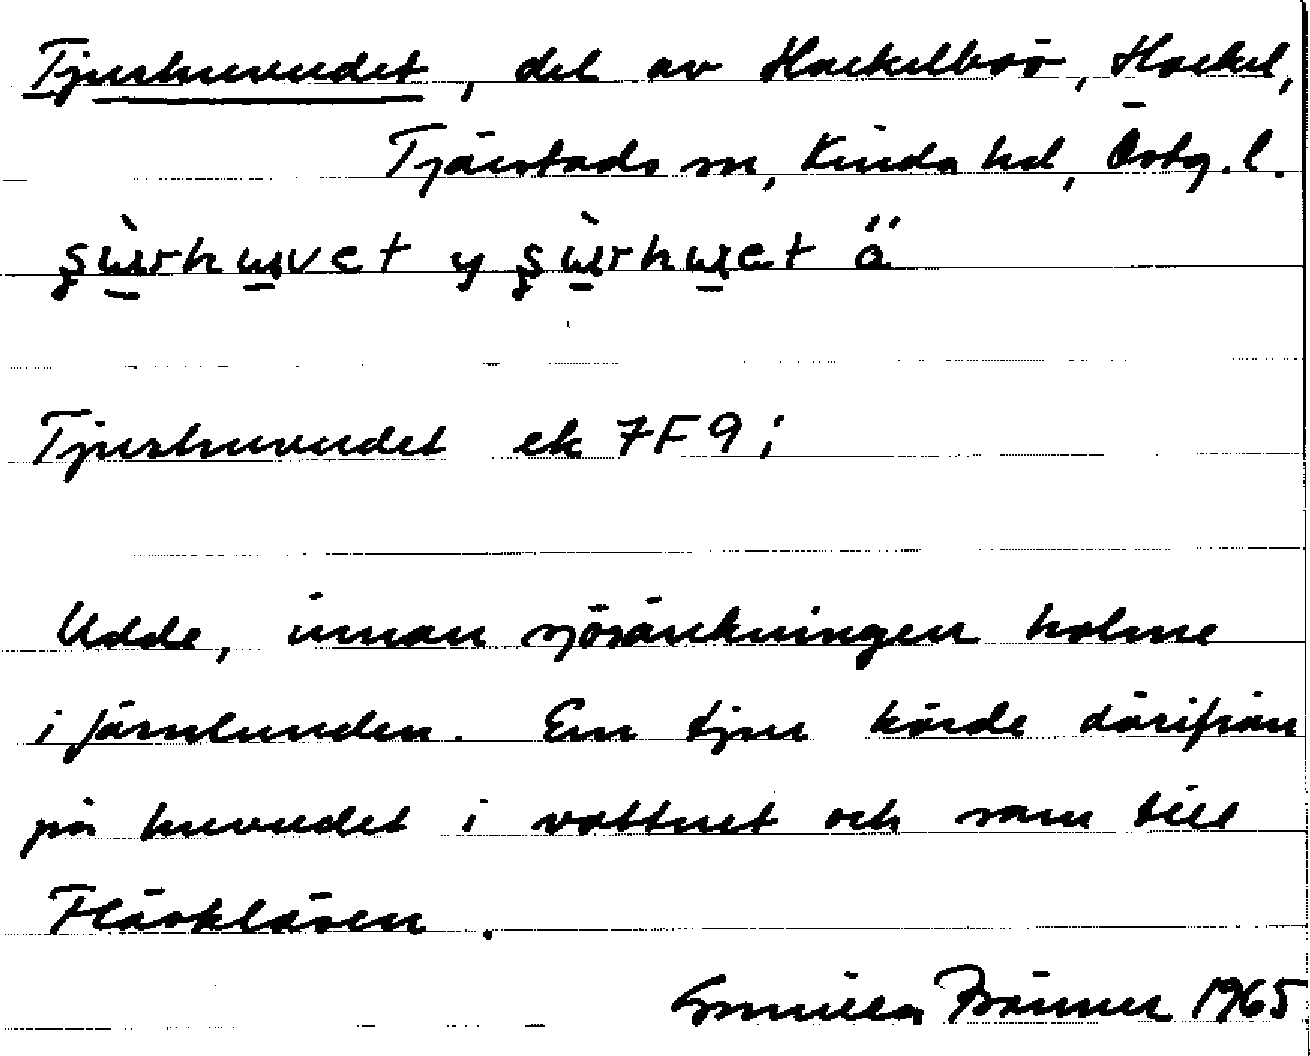 Tjurhuvudet, del av Hackelboö, Hackel,
Tjärstads sn, Kinda hd, Östg. l.
y ä
Tjurhuvudet ek 7F9i
Udde, innan sjösänkningen holme
i Järnlunden. En tjur körde därifrån
på huvudet i vattnet och sam till
Gunilla 1965